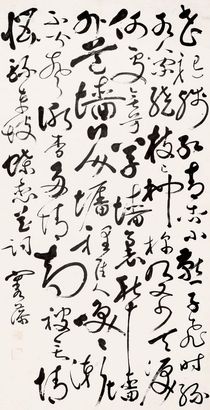 花褪殘紅青杏小燕子飛時綠
水人家繞枝上柳棉吹又少天涯
何處無芳草墻裏秋千墻
外道墻外行人墻裡佳人笑笑漸
不聞聲漸杳多情却被無情
惱 東坡蝶恋花詞